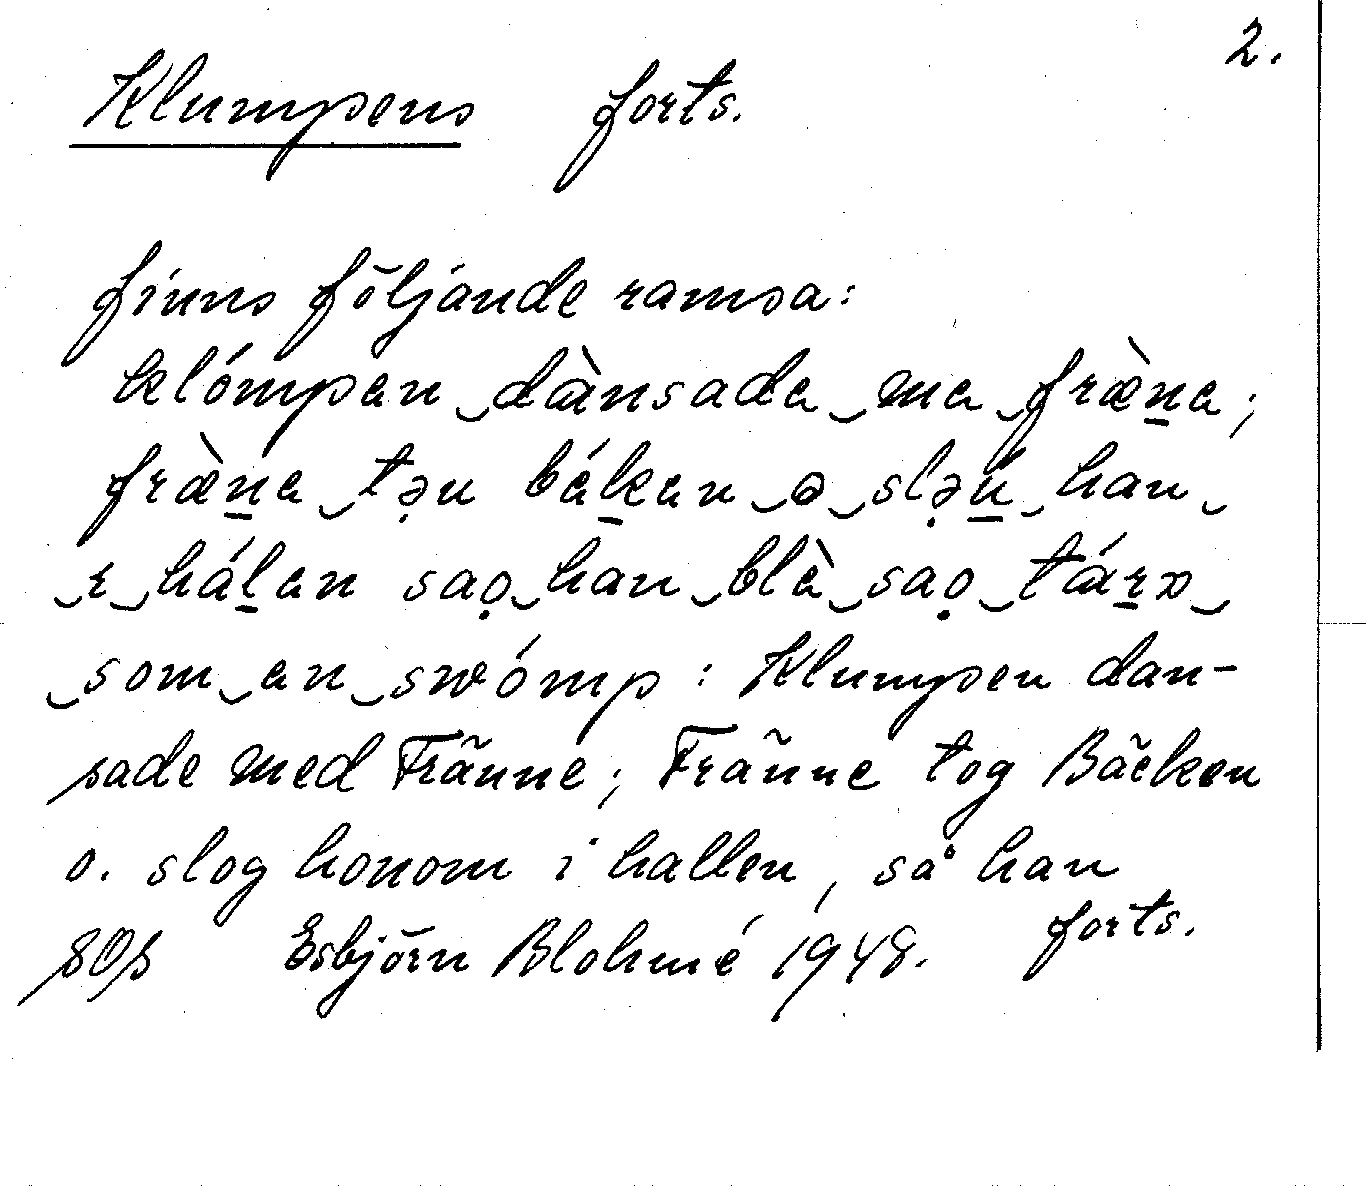 2.
Klumpens forts.
finns följande ramsa:
klómpan‿dànsada‿ma‿fræ̀n̲a;
fræ̀n̲a‿tə̣u bák̲an‿ə‿slə̣́u̲‿han‿
‿r‿hál̲an saọ‿han‿blà‿saọ‿tár̲ω‿
‿som‿an‿swómp : Klumpen dan-
sade med Fränne; Fränne tog Bäcken
o. slog honom i hallen, så han
forts.
SOp Esbjörn Blohmé 1948.